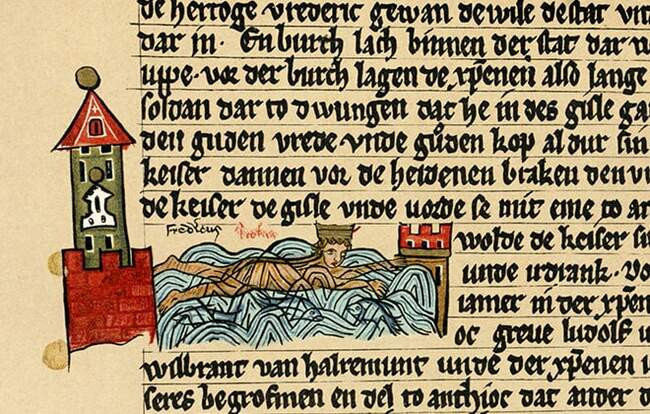 de hertoge vrederic gewan de wile de stat vn
dar in. En burch lach binnen der stat dar
uppe. vor der burch lagen de xpenen also lange
soldan dar to dwungen dat he in des gisle ga
den guden vrede vnde guden kop al dur sin
keiser dannen vor de heidenen braken den
de keiser de gisle vnde vorde se mit eme to ar
Fredicus
wolde de keiser
unde irdrank. Vo
iamer in der xpen
oc greve ludolf u
wilbrant van halremunt unde der xpenen
seres begrofmen en del to anthioc dat ander d